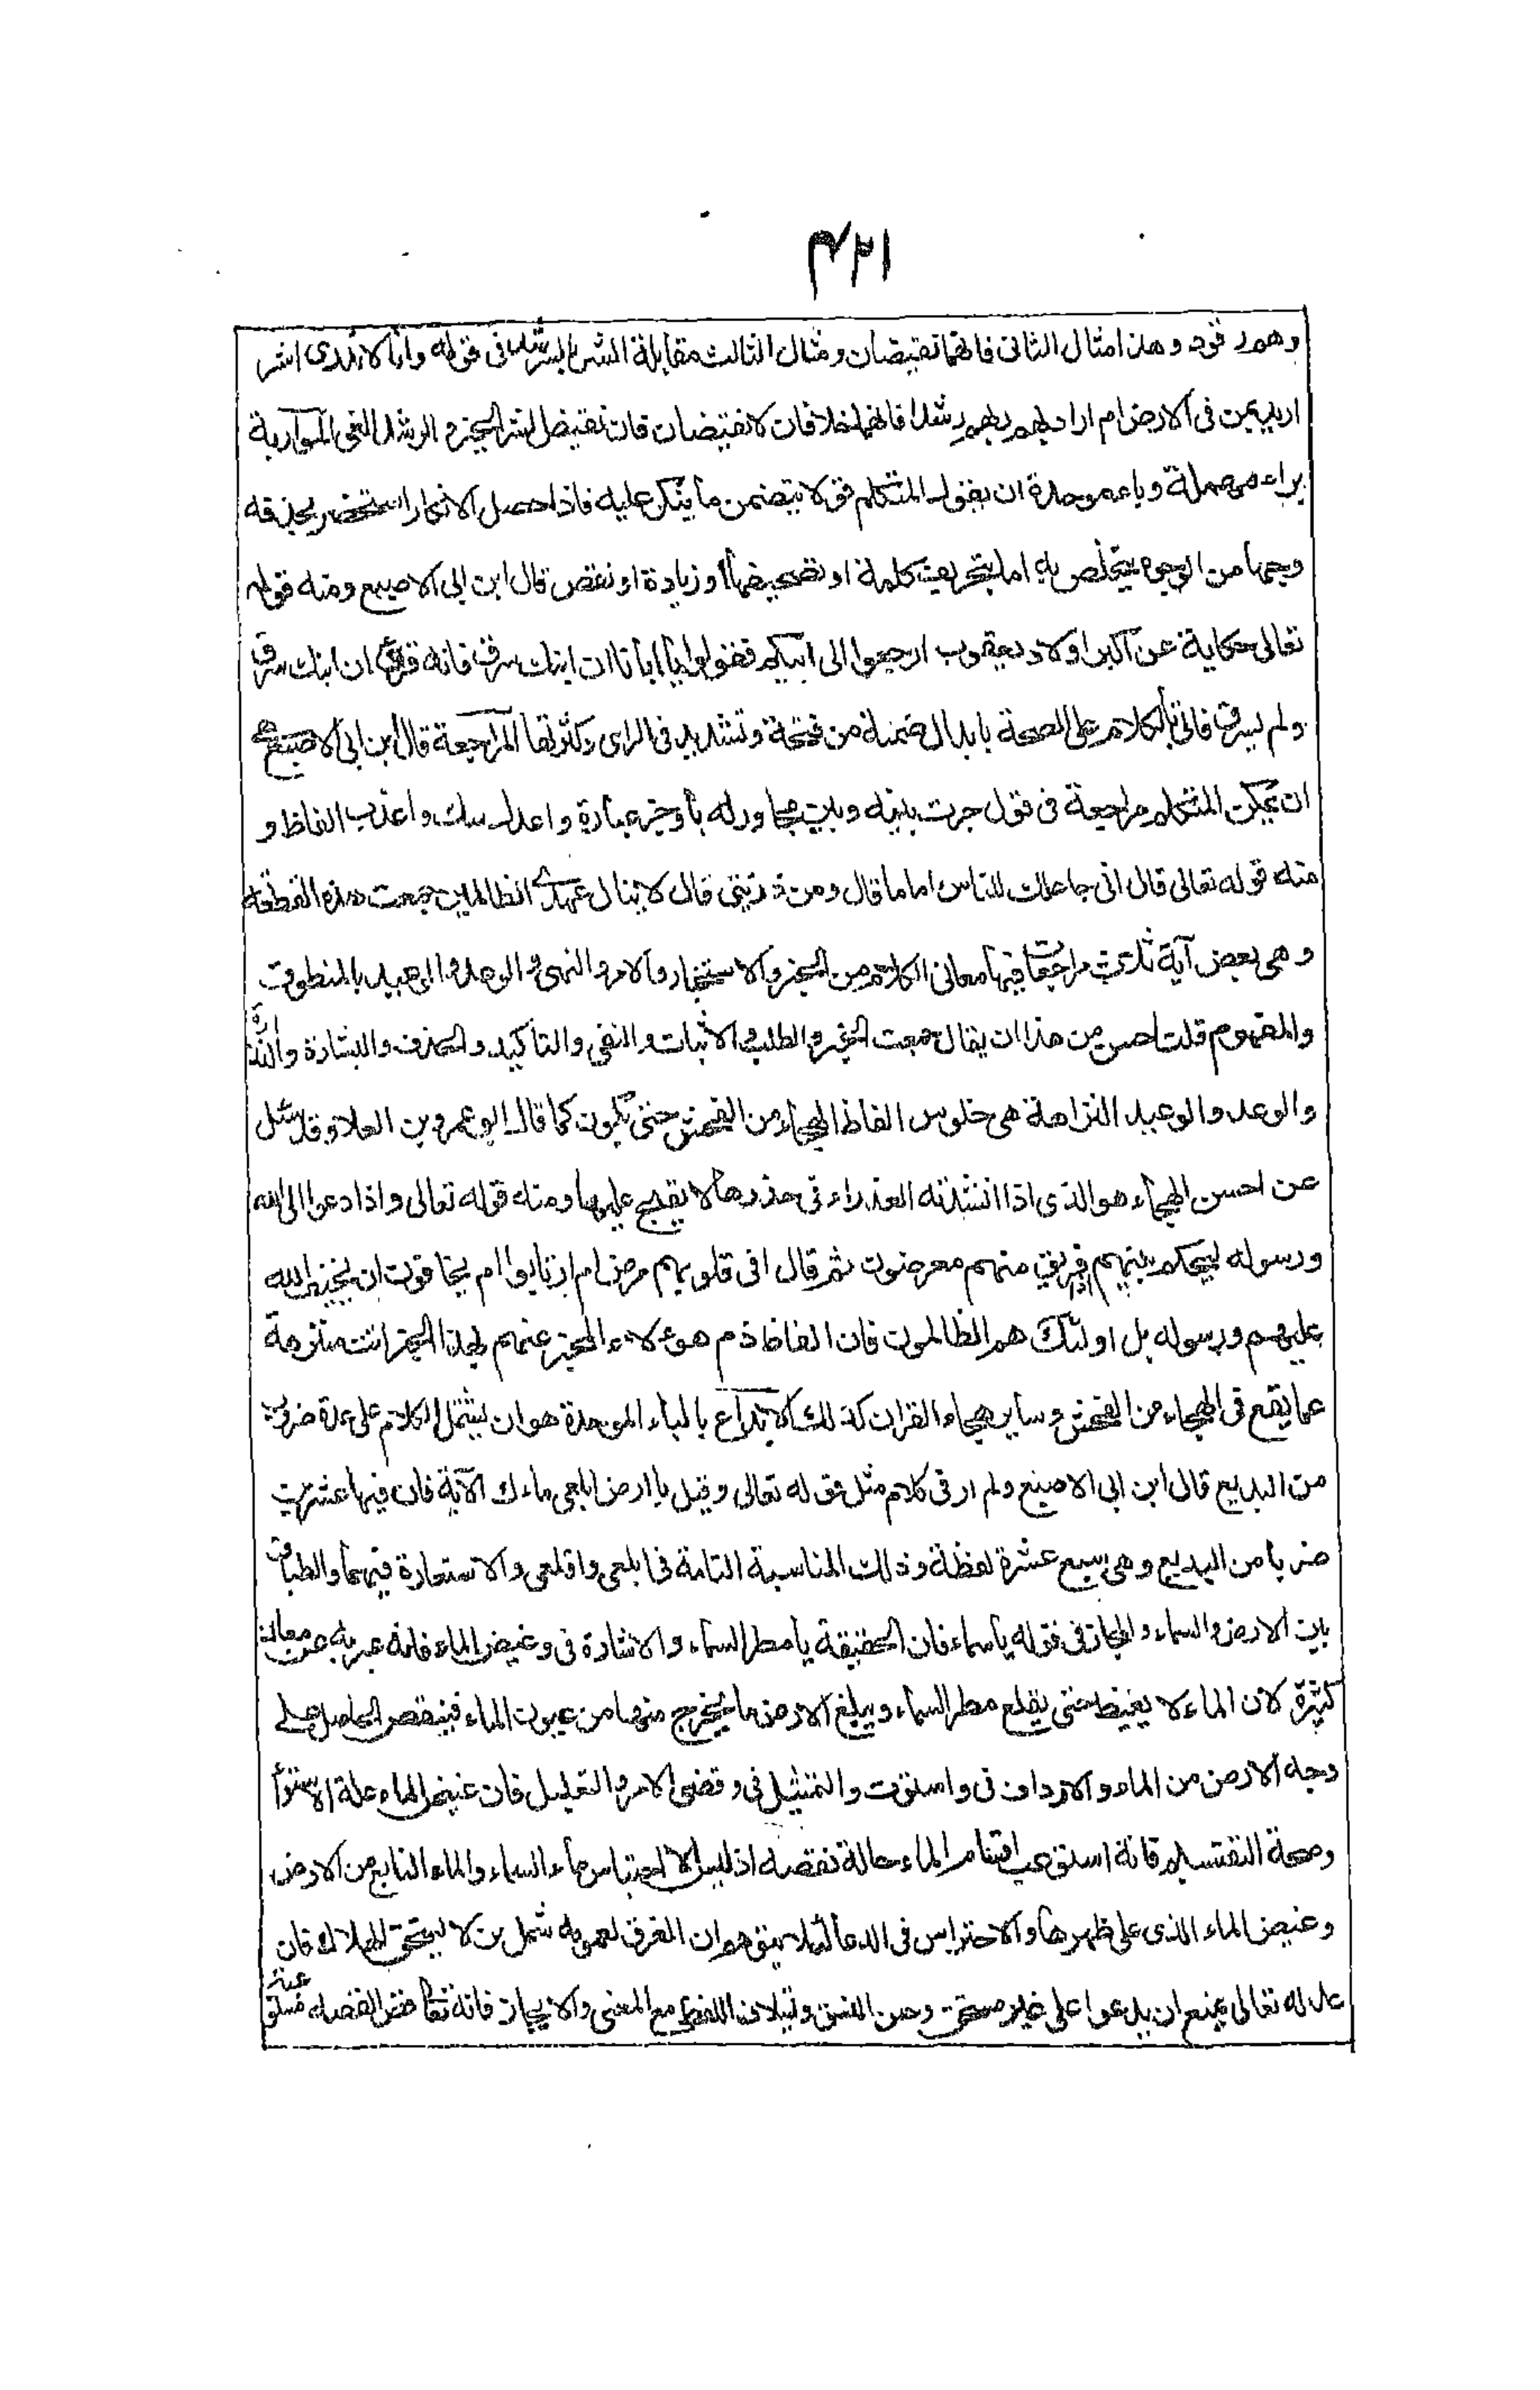 ۴۲۱
وهم رقود وهذا مثال الثانى فانهما نقيضان ومثال الثالث مقابلة الشر بالرشد فى قوله وانا لا ندرى اشر
اريد بمن فى الارض ام اراد بهم ربهم رشدا فانهما خلافان لا نقيضان فان نقيض الشر الخير والرشد الغى المواربة
براء مهملة وباء موحدة ان يقول المتكلم قولا يتضمن ما ينكر عليه فاذا حصل الانكار استحضر بحذقه
وجها من الوجوه يتخلص به اما بتحريف كلمة او تصحيفها او زيادة او نقص قال ابن ابى الاصبع ومنه قوله
تعالى حكاية عن اكبر اولاد يعقوب ارجعوا الى ابيكم فقولوا يا ابانا ان ابنك سرق فانه قرئ ان ابنك سرق
ولم يسرق فاتى بالكلام على الصحة بابدال ضمة من فتحة وتشديد فى الراى وكسرتها المراجعة قال ابن ابى الاصبع هى
ان يحكى المتكلم مراجعة فى قول جرت بينه وبين محاور له باوجز عبارة واعدل سبك واعذب الفاظ و
منه قوله تعالى قال انى جاعلك للناس اماما قال ومن ذريتى قال لا ينال عهدى الظالمين جمعت هذه القطعة
وهى بعض آية ثلاث مراجعات فيها معانى الكلام من الخبر والاستخبار والامر والنهى والوعد والوعيد بالمنطوق
والمفهوم قلت احسن من هذا ان يقال جمعت الخبر والطلب والاثبات والنفى والتاكيد والحذف والبشارة والنذارة
والوعد والوعيد النزاهة هى خلوص الفاظ الهجاء من الفحش حتى يكون كما قال ابو عمرو بن العلا وقد سئل
عن احسن الهجاء هو الذى اذا انشدته العذراء فى خدرها لا يقبح عليها ومنه قوله تعالى واذا دعوا الى الله
ورسوله ليحكم بينهم اذا فريق منهم معرضون ثم قال افى قلوبهم مرض ام ارتابوا ام يخافون ان يحيف الله
عليهم ورسوله بل اولئك هم الظالمون فان الفاظ ذم هؤلاء المخبر عنهم بهذا الخبر اتت منزهة
عما يقع فى الهجاء من الفحش وسائر هجاء القران كذلك الابداع بالباء الموحدة هو ان يشتمل الكلام على عدة ضروب
من البديع قال ابن ابى الاصبع ولم ار فى كلام مثل قوله تعالى وقيل يا ارض ابلعى ماءك الآية فان فيها عشرين
ضربا من البديع وهى سبع عشرة لفظة وذلك المناسبة التامة فى ابلعى واقلعى والاستعارة فيهما والطباق
بين الارض والسماء والمجاز فى قوله يا سماء فان الحقيقة يا مطر السماء والاشارة فى وغيض الماء فانه عبر به عن معان
كثيرة لان الماء لا يغيض حتى يقلع مطر السماء ويبلع الارض ما يخرج منها من عيون الماء فينقص الحاصل على
وجه الارض من الماء والارداف فى واستوت والتمثيل فى وقضى الامر والتعليل فان غيض الماء علة الاستواء
وصحة التقسيم فانه استوعب اقسام الماء حالة نقصه اذ ليس الا احتباس ماء السماء والماء النابع من الارض
وغيض الماء الذى على ظهرها والاحتراس فى الدعاء لئلا يتوهم ان الغرق لعمومه شمل من لا يستحق الهلاك فان
عدله تعالى يمنع ان يدعوا على غير مستحق وحسن النسق وائتلاف اللفظ مع المعنى والايجاز فانه تعالى قص القصة مستوعبة